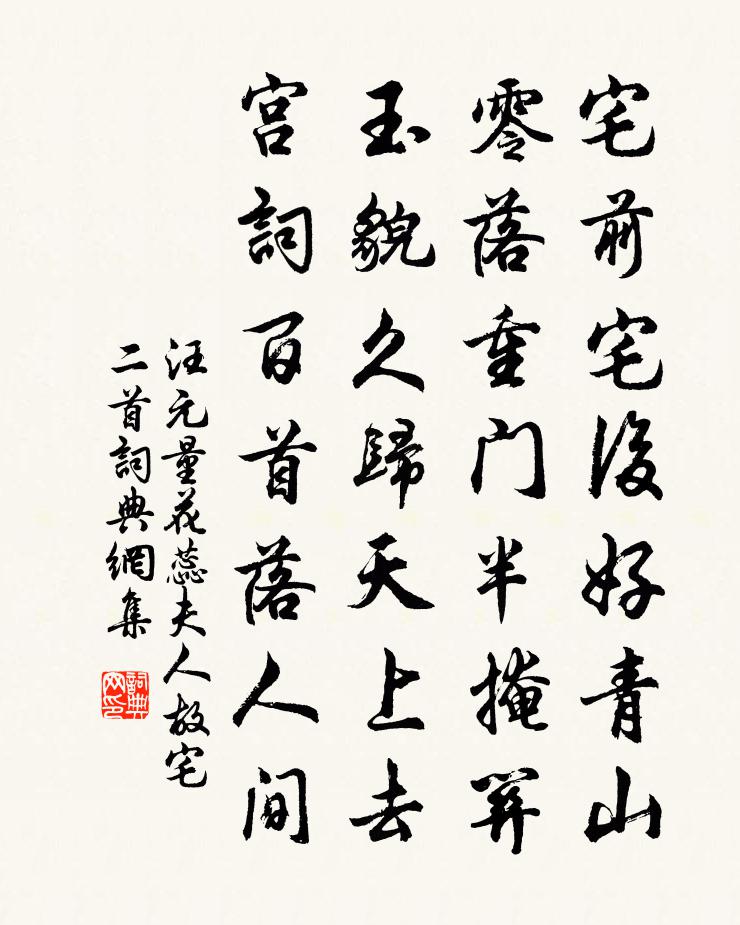 宅前宅後好青山
零落重門半掩關
玉貌久歸天上去
宮詞百首落人間
汪元量花蕊夫人故宅
二首詞典網集
詞典网印